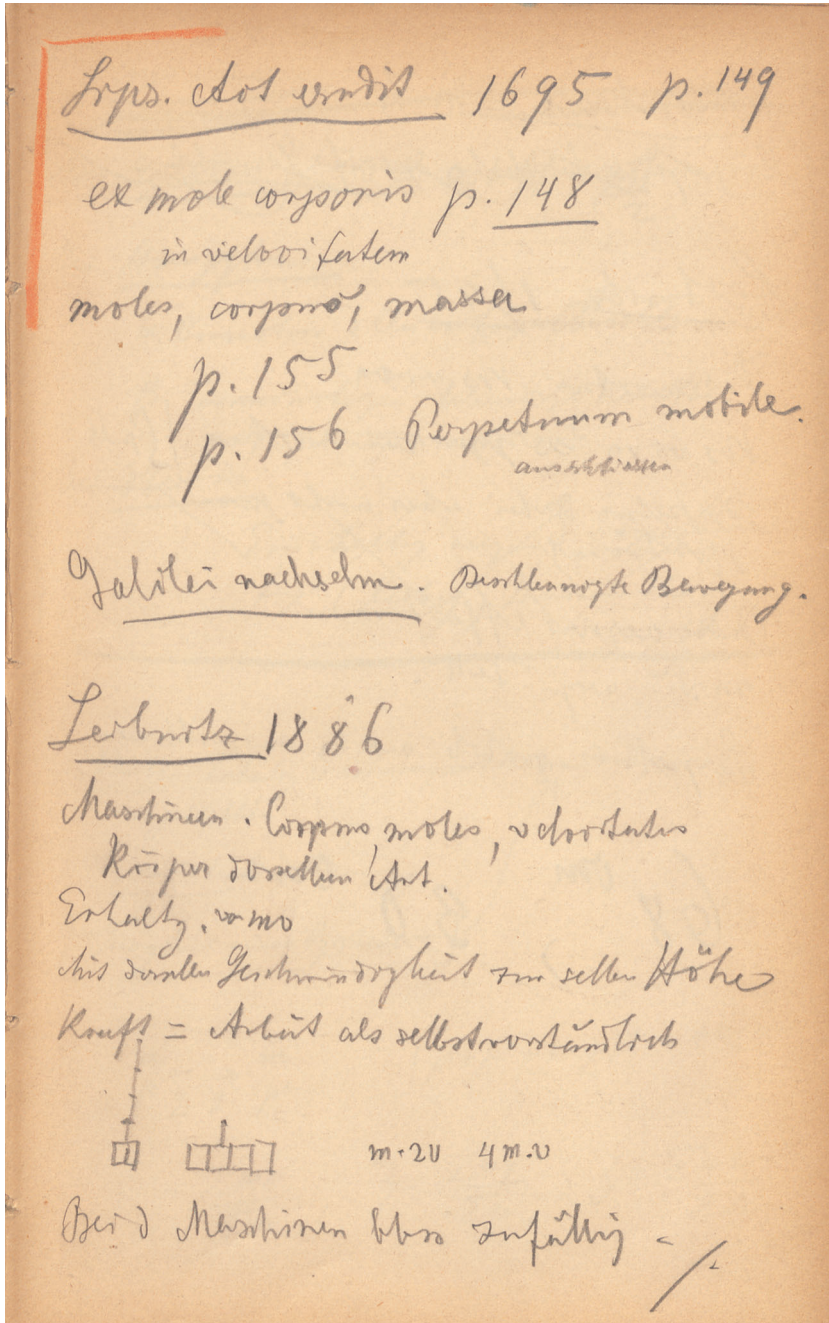 Lips. Act erudit 1695 p. 149
ex mole corporis p. 148
in velocitatem
moles, corpus, massa
p. 155
p. 156 Perpetuum mobile.
ausschliessen
Galilei nachsehn. Beschleunigte Bewegung.
Leibnitz 1886
Maschinen. Corpus, moles, velocitatis
Körper derselben Art.
Erhaltg. von mv
Mit derselben Geschwindigkeit zur selben Höhe
Kraft = Arbeit als selbstverständlich
m·2v 4m·v
Bei d Maschinen blos zufällig